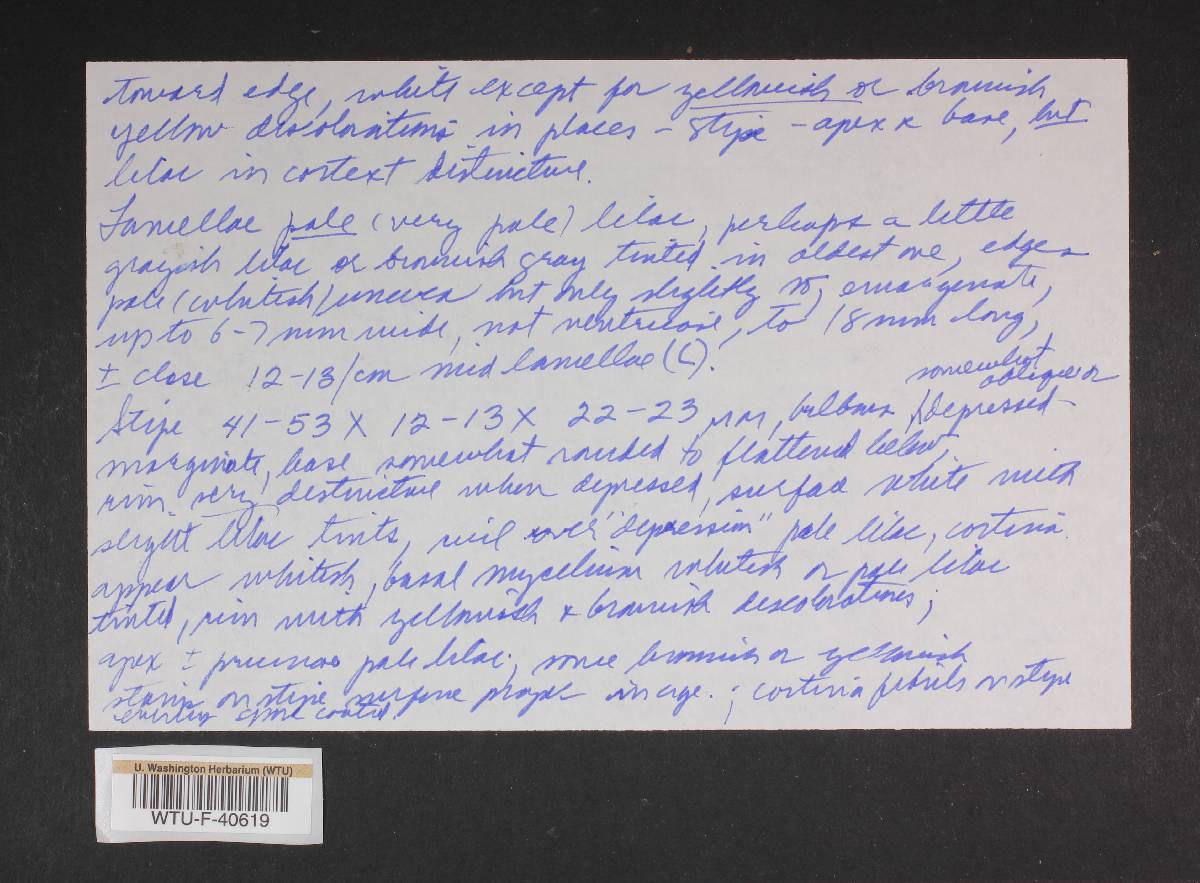 toward edge, white except for yellowish or brownish
yellow discolorations in places - stipe - apex & base, but
lilac in cortext distinctive.
Lamellae pale (very pale) lilac, perhaps a little
grayish lilac or brownish gray tinted in oldest one, edges
pale (whitish) uneven but only slightly so, emarginate,
up to 6-7 mm wide, not ventricose, to 18 mm long,
± close 12-13/cm mid lamellae (L).
somewhat
oblique or
Stipe 41-53 X 12-13 X 22-23 mm, bulbous depressed-
marginate, base somewhat rounded to flattened below,
rim very distinctive when depressed, surface white with
slight lilac tints, veil over "depression" pale lilac, cortina
appear whitish, basal mycelium whitish or pale lilac
tinted, rim with yellowish & brownish discolorations;
apex ± pale lilac; some brownish or yellowish
stains on stipe surface in age.; cortina fibrils on stipe
U. Washington Herbarium (WTU)
WTU-F-40619